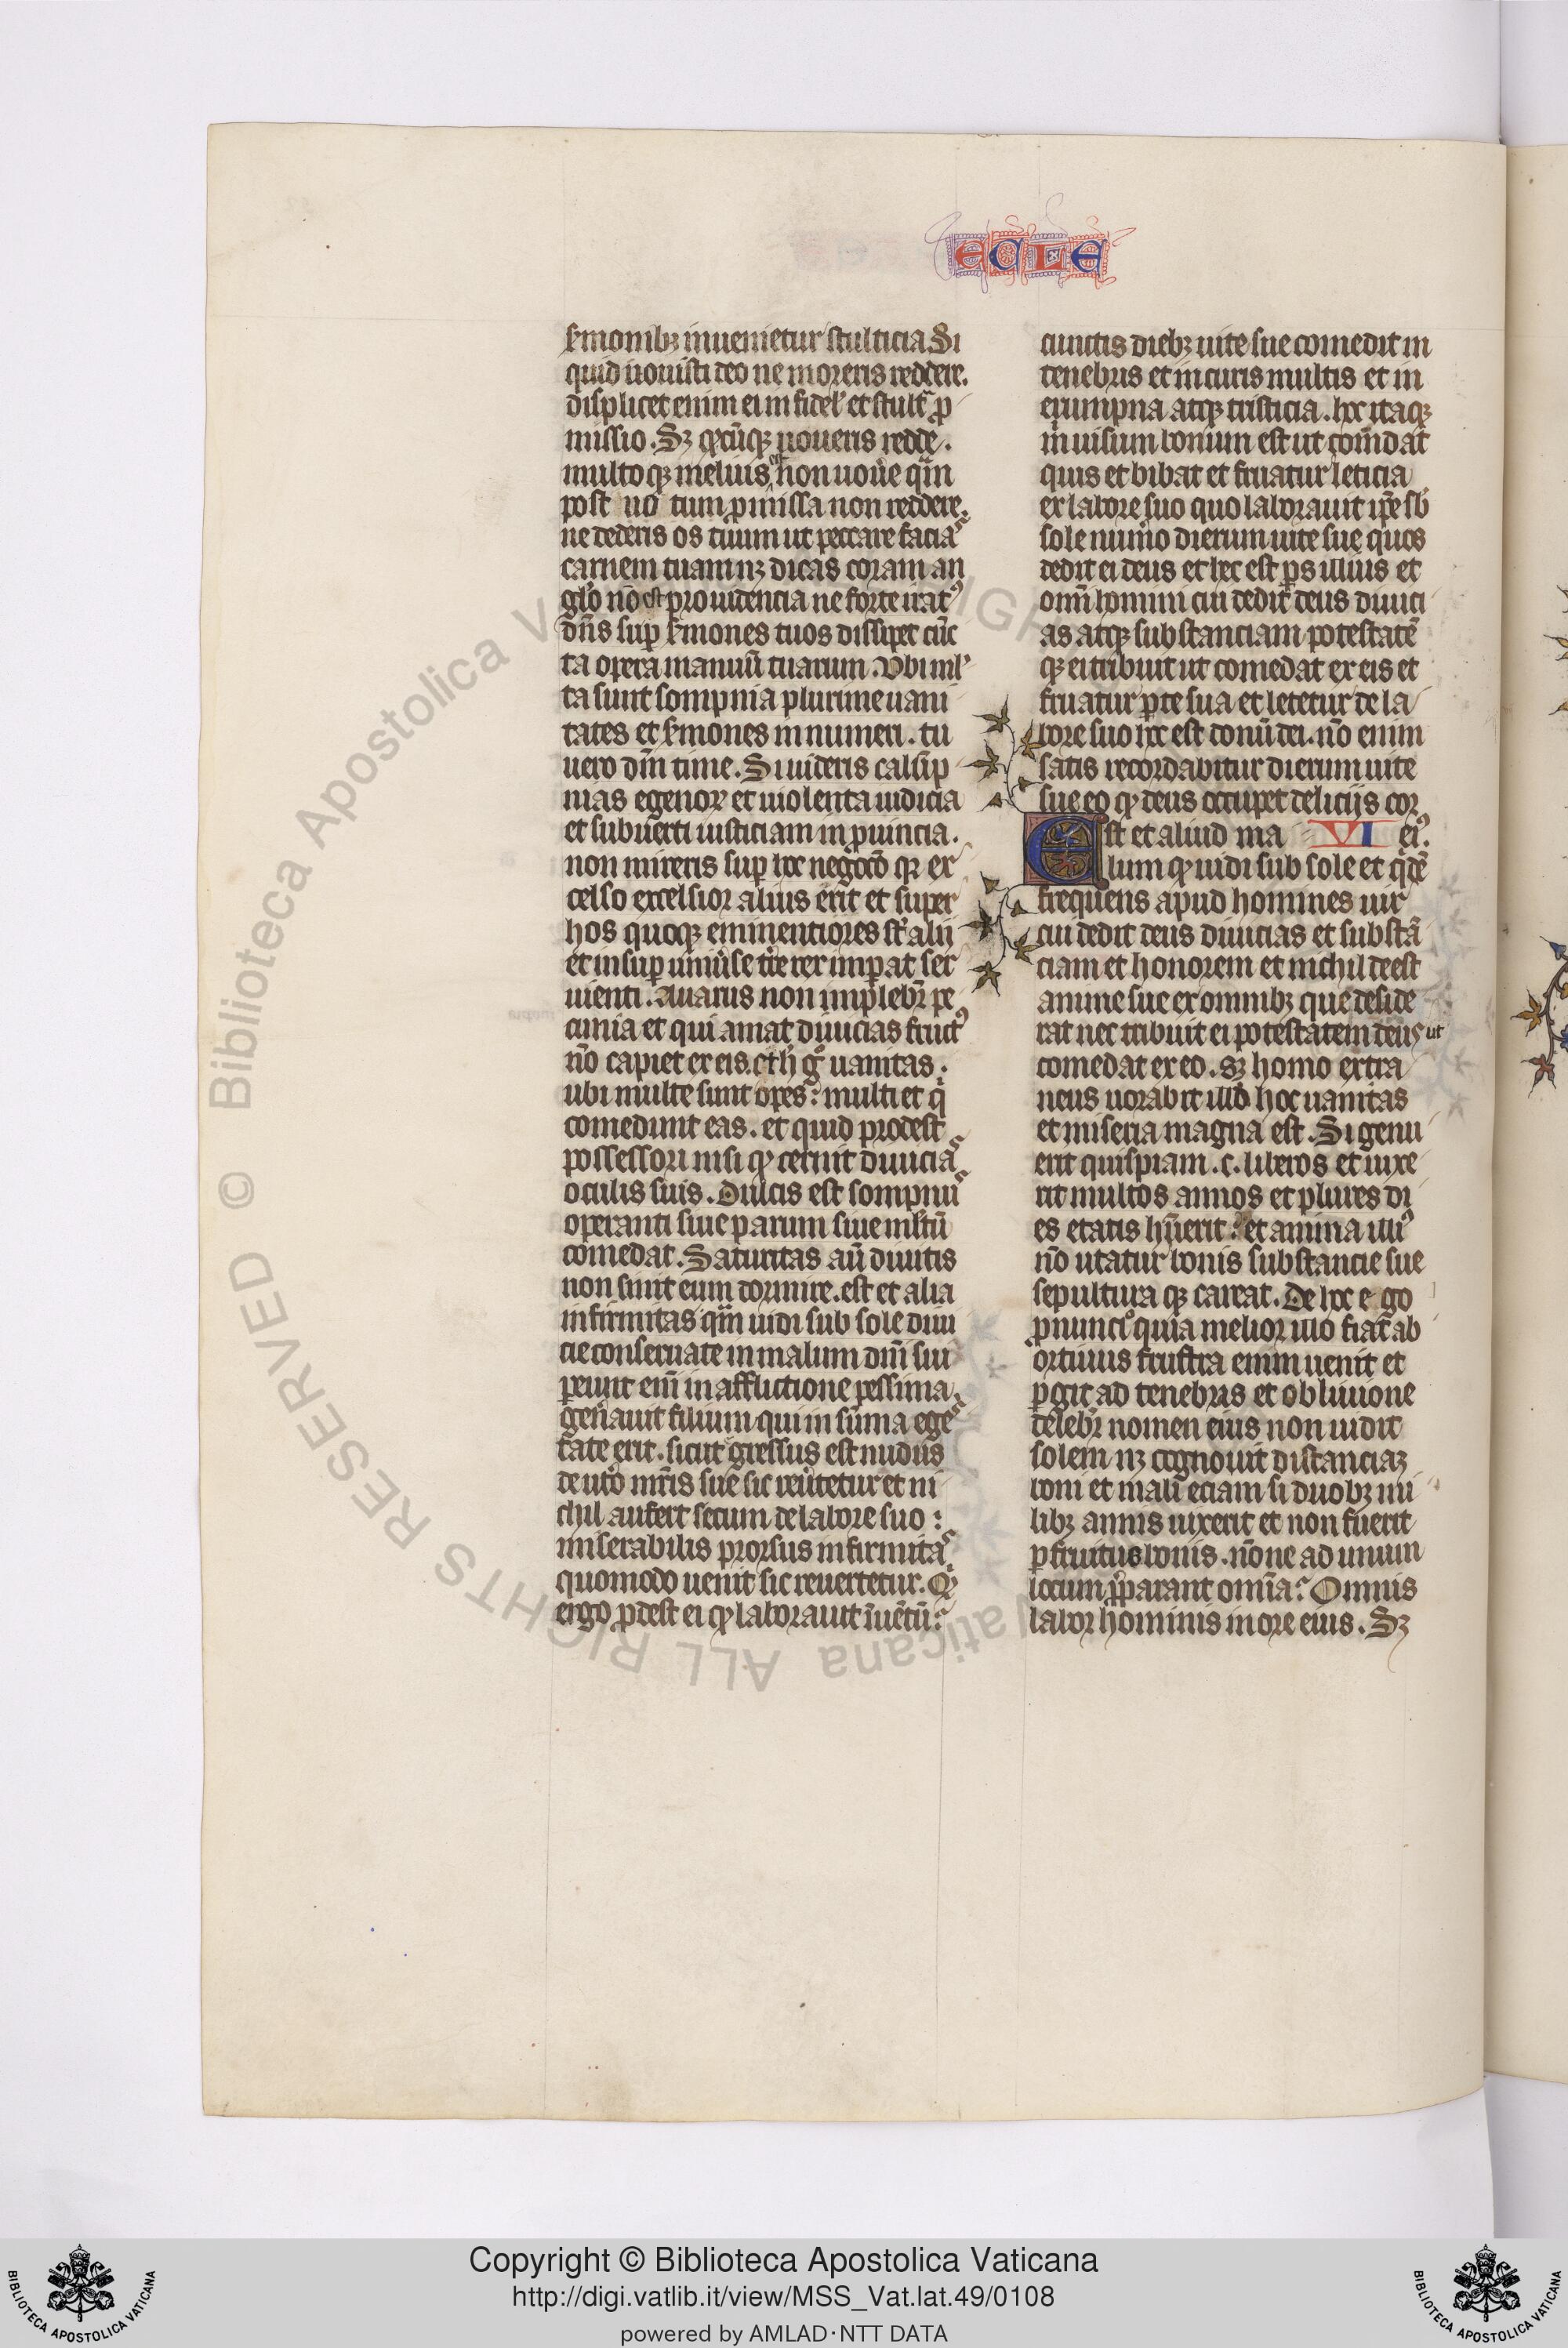 ECLE
s̄monibꝫ inuenietur stulticia Si
quid uouisti deo ne moreris reddere.
displicet enim ei infidel' et stult᷑ ꝓ
missio. Sꝫ qd̄cūqꝫ uoueris redde.
multoqꝫ melius est non uoūe qm̄
post uo tum ꝓmissa non reddere.
ne dederis os tuum ut peccare faciaˢ
carnem tuam nꝫ dicas coram an
glo nō est prouidencia ne forte iratꝰ
dn̄s suꝑ s̄mones tuos dissipet cūc
ta opera manuū tuarum. Vbi ml'
ta sunt sompnia plurime uani
tates et s̄mones innumeri. tu
uero dm̄ time. Si uideris calūp
nias egenoꝝ et uiolenta iudicia
et subuerti iusticiam in ꝓuincia.
non mireris suꝑ hoc negocō qꝛ ex
celso excelsior alius erit et super
hos quoqꝫ eminentiores st᷑ alij
et insuꝑ uniūse tr̄e rex imꝑat ser
uienti. Auarus non implebr̄ pe
cunia et qui amat diuicias fructꝰ
nō capiet ex eis. et h' gͦ uanitas.
ubi multe sunt opes: multi et qͥ
comedunt eas. et quid prodest
possessori nisi qꝙ cernit diuiciaˢ
oculis suis. Dulcis est sompnuˢ
operanti siue parum siue ml'tū
comedat. Saturitas aū diuitis
non sinit eum dormire. est et alia
infirmitas qm̄ uidi sub sole diui
cie conseruate in malum dn̄i sui
ꝑeunt eni᷑ in afflictione pessima.
geñauit filium qui in sūma egeˢ
tate erit. sicut gressus est nudus
de utͦo mr̄is sue sic reūtetur et ni
chil aufert secum de labore suo:
miserabilis prorsus infirmitaˢ
quomodo uenit sic reuertetur. Qꝙ
ergo ꝓdest ei qꝙ laborauit ī uētū?
cunctis diebꝫ uite sue comedit in
tenebris et in curis multis et in
erumpna atqꝫ tristicia. hoc itaqꝫ
m̄ uisum bonum est ut com̄dat
quis et bibat et fruatur leticia
ex labore suo quo laborauit ip̄e sb̄
sole num̄o dierum uite sue quos
dedit ei deus et hec est ꝑs illius et
omi᷑ homini cui dedit deus diuici
as atqꝫ substanciam potestatē
qꝫ ei tribuit ut comedat ex eis et
fruatur ꝑte sua et letetur de la
bore suo hoc est donū dei. nō enim
satis recordabitur dierum uite
sue eo qꝙ deus occupet delicijs cor
Est et aliud ma VI eiꝰ.
lum qꝙ uidi sub sole et qͥdē
frequens apud homines uir
cui dedit deus diuicias et substā
ciam et honorem et nichil deest
anime sue ex omnibꝫ que deside
rat nec tribuit ei potestatem deus ut
comedat ex eo. sꝫ homo extra
neus uorabit illd̄ hoc uanitas
et miseria magna est. Si genu
erit quispiam .c. liberos et uixe
rit multos annos et plures di
es etatis hūerit: et anima illiꝰ
nō utatur bonis substancie sue
sepultura qꝫ careat. De hoc e go
ꝓnunciͦ quia melior illo fiat᷑ ab
ortiuus frustra enim uenit et
ꝑgit ad tenebras et obliuione
delebr̄ nomen eius non uidit
solem nꝫ cognouit distanciaꝫ
boni et mali eciam si duobꝫ mi
libꝫ annis uixerit et non fuerit
ꝑfruitus bonis. nōne ad unum
locum ꝓꝑarant oīna? Omnis
labor hominis in ore eius. Sꝫ
Copyright © Biblioteca Apostolica Vaticana
http://digi.vatlib.it/view/MSS_Vat.lat.49/0108
powered by AMLAD·NTT DATA
BIBLIOTECA APOSTOLICA VATICANA
BIBLIOTECA APOSTOLICA VATICANA
© Biblioteca Apostolica Vaticana ALL RIGHTS RESERVED